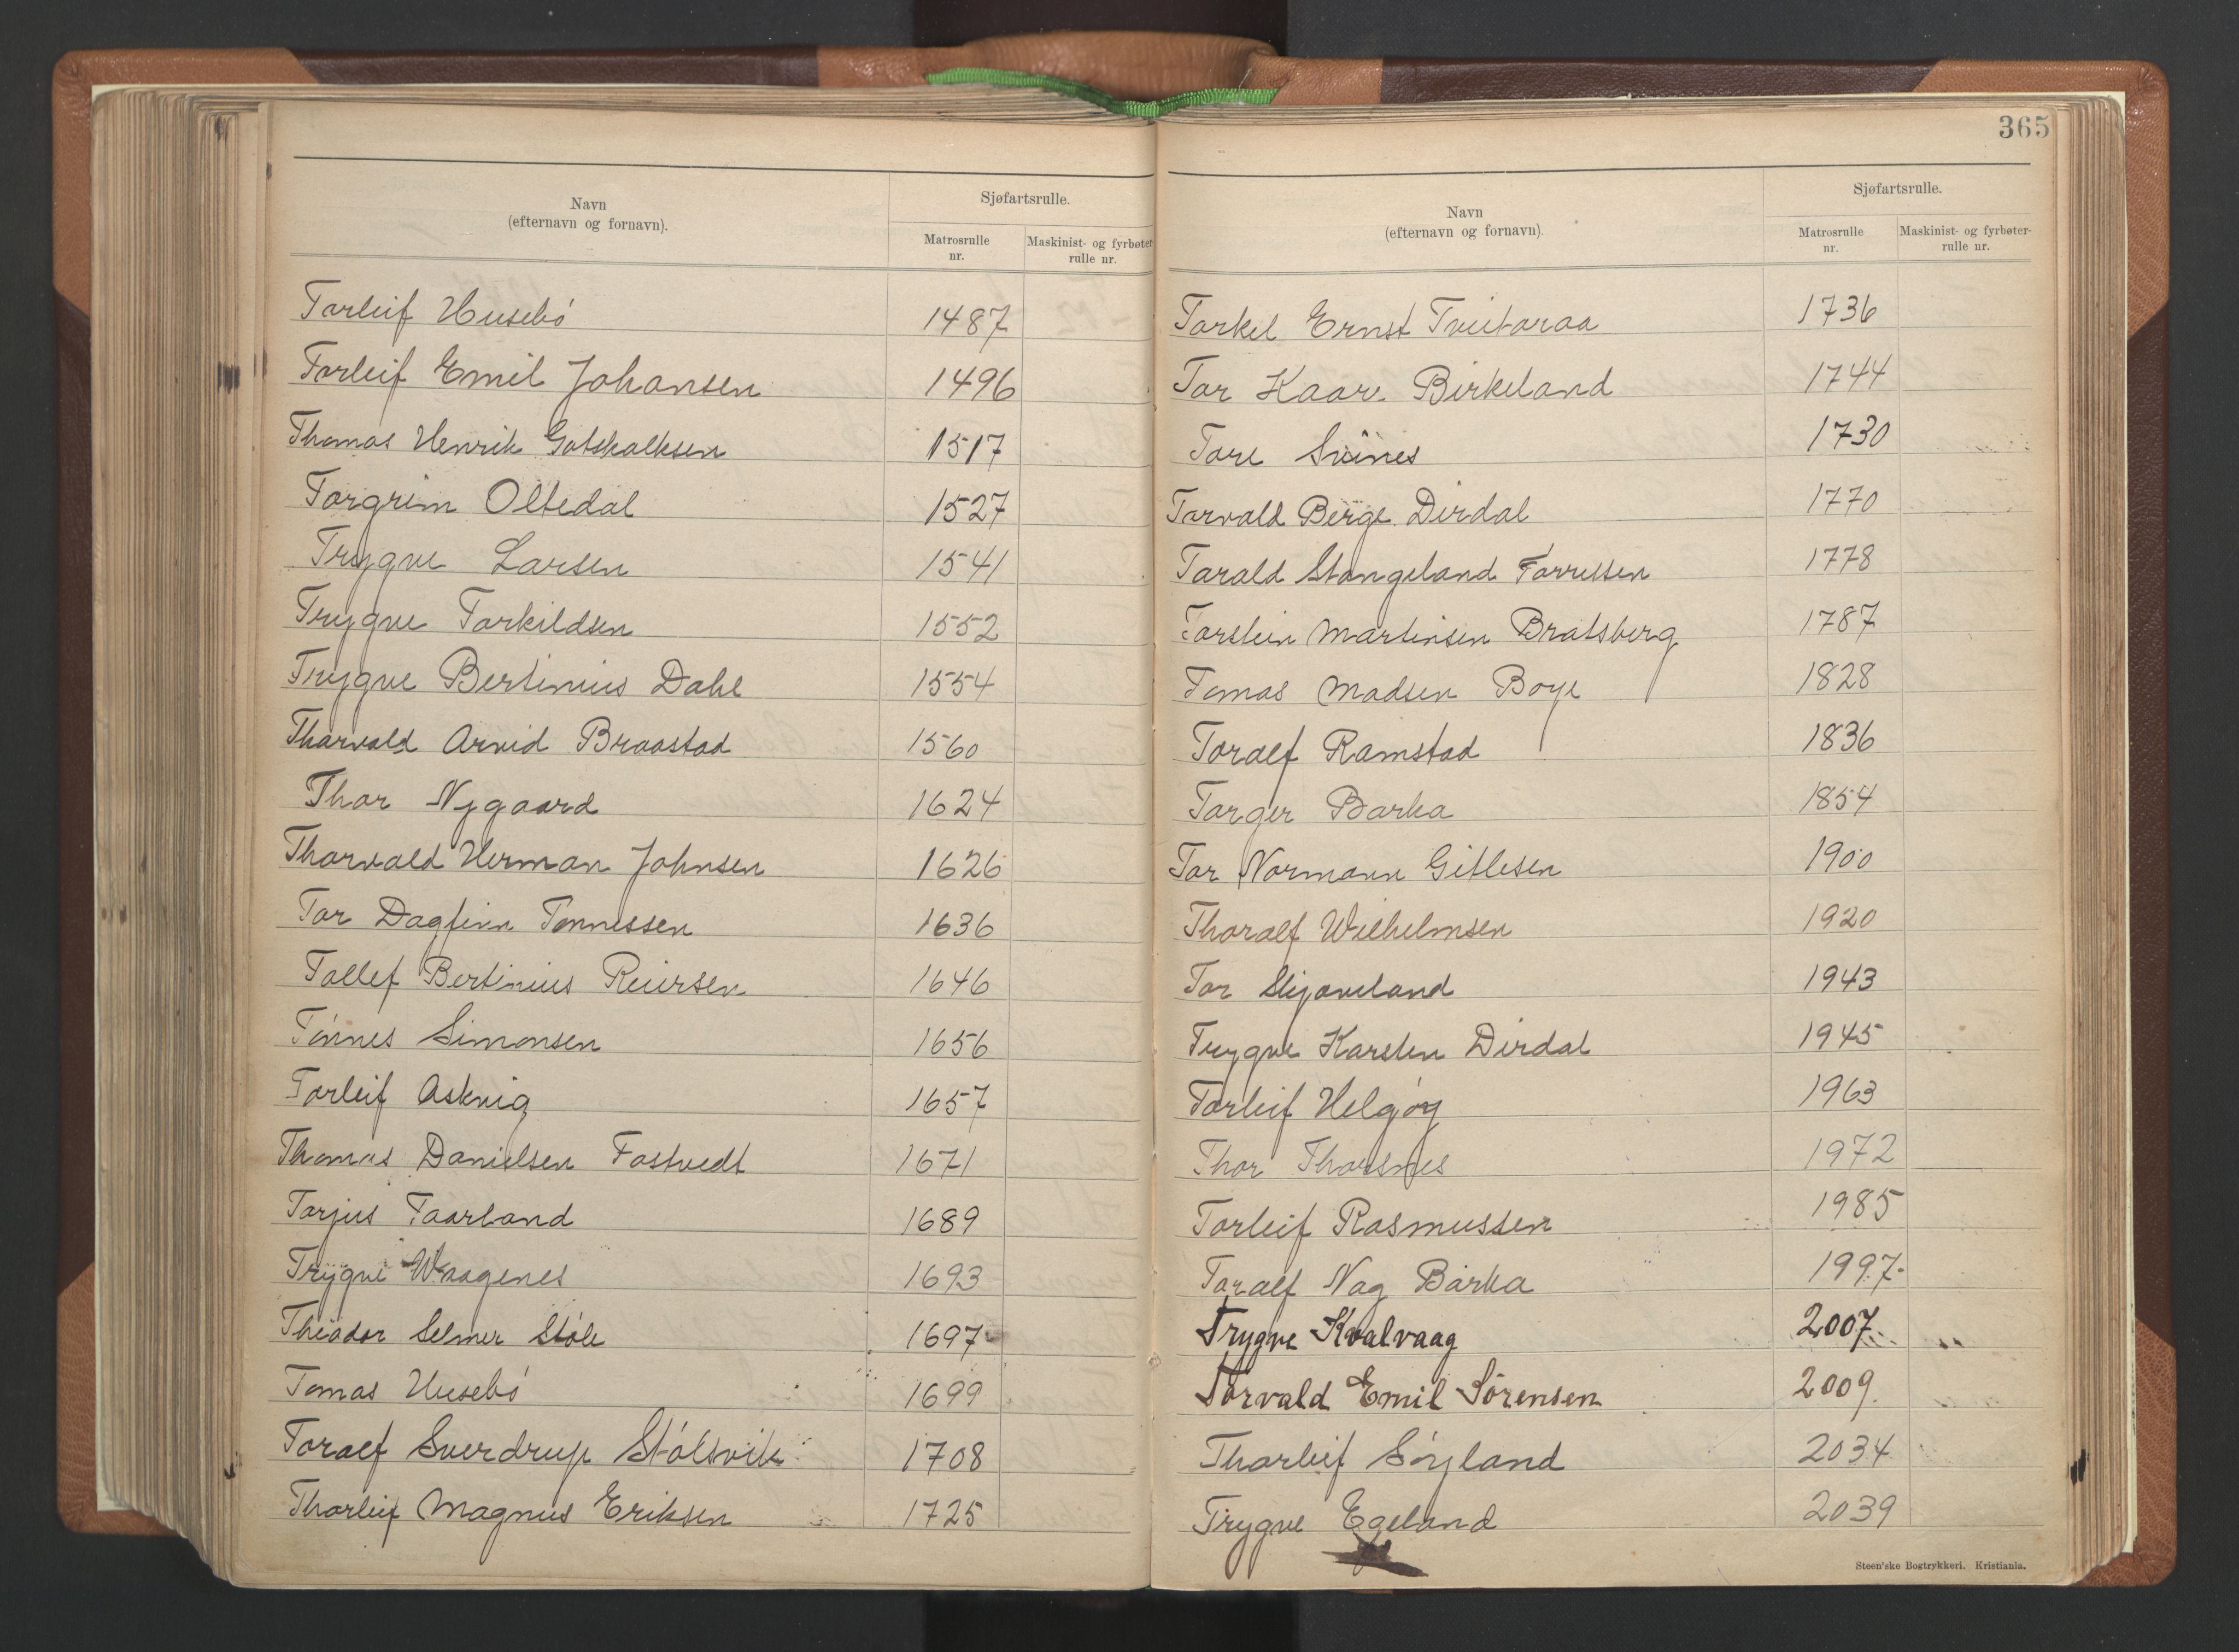 Navn
(efternavn og fornavn).
Sjøfartsrulle.
Matrosrulle nr.
Maskinist- og fyrbøter-rulle nr.
Torleif Husebó 1487
Torleif Emil Johansen 1496
Thomas Henrik Gotskalksen 1517
Torgrim Oltedal 1527
Trygve Larsen 1541
Trygve Torkildsen 1552
Trygve Bertinius Dahl 1554
Thorvald Arvid Braastad 1560
Thor Nygaard 1624
Thorvald Herman Johnsen 1626
Tor Dagfinn Tonnessen 1636
Tollef Bertinius Reiersen 1646
Tónnes Simonsen 1656
Torleif Askvig 1657
Thomas Danielsen Fostvedt 1671
Torjus Taarland 1689
Trygve Waagenes 1693
Theodor Selmer Stöle 1697
Tomas Husebó 1699
Toralf Sverdrup Stólsvik 1708
Thorleif Magnus Eriksen 1725
365
Navn
(efternavn og fornavn).
Sjøfartsrulle.
Matrosrulle nr.
Maskinist- og fyrbøter-rulle nr.
Torkel Ernst Tveitaraa 1736
Tor Kaare Birkeland 1744
Tore Svines 1730
Torvald Berge Dirdal 1770
Torald Stangeland Torressen 1778
Torstein Martinsen Bratsberg 1787
Tomas Madsen Boye 1828
Toralf Ramstad 1836
Torger Barka 1854
Tor Normann Gitlesen 1900
Thoralf Wilhelmsen 1920
Tor Skjæveland 1943
Trygve Karsten Dirdal 1945
Torleif Helgóy 1963
Thor Thorsnes 1972
Torleif Rasmussen 1985
Toralf Nag Barka 1997
Trygve Kvalvaag 2007
Torvald Emil Sörensen 2009
Thorleif Sóyland 2034
Trygve Egeland 2039
Steen'ske Bogtrykkeri. Kristiania.